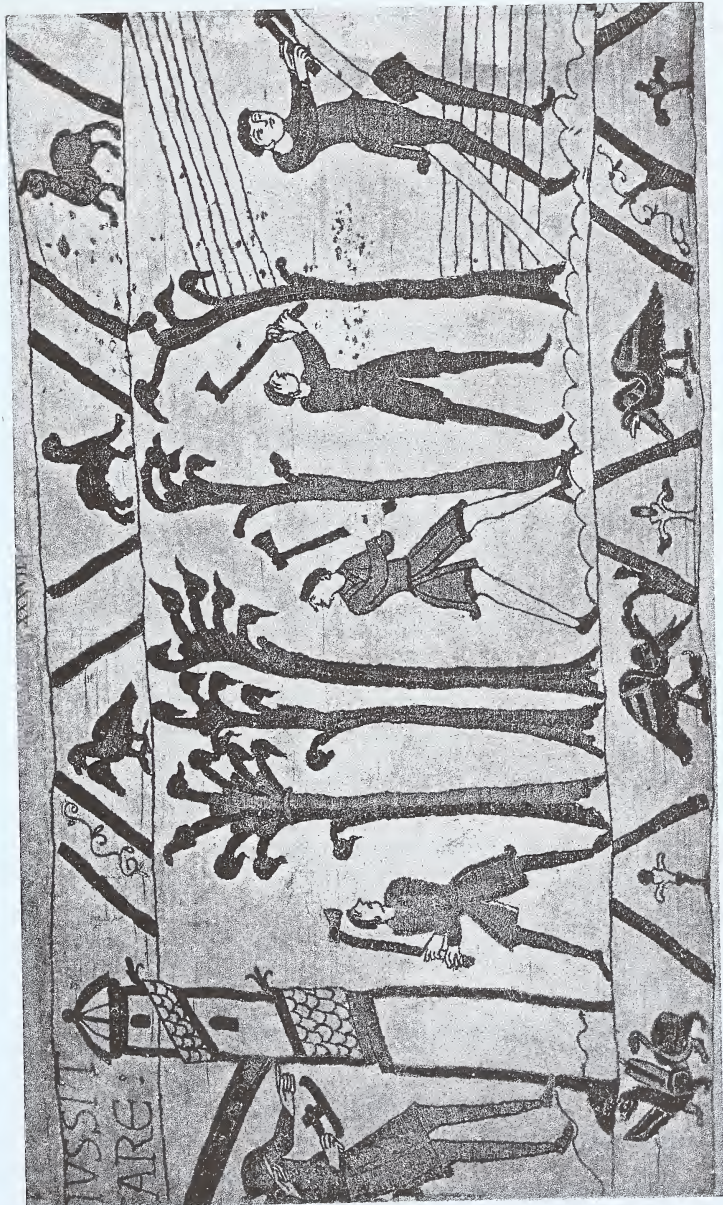 IVSSIT
ARE: